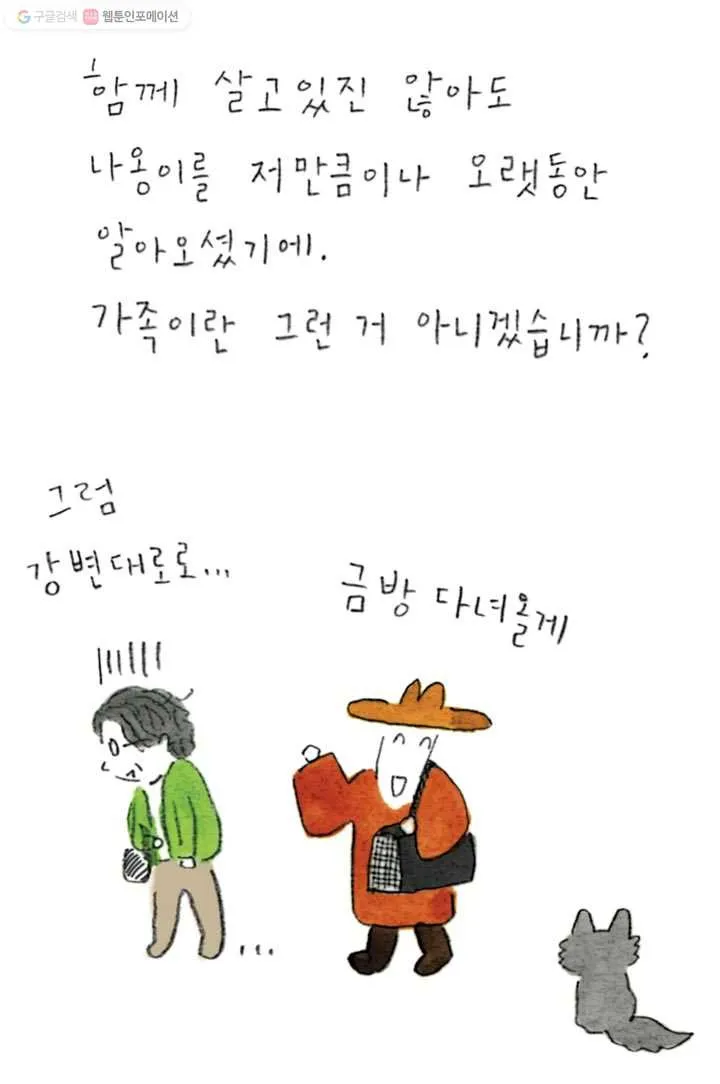 구글검색 웹툰인포메이션
함께 살고있진 않아도
나옹이를 저만큼이나 오랫동안
알아오셨기에.
가족이란 그런 거 아니겠습니까?
그럼
강변대로로...
금방 다녀올게
...